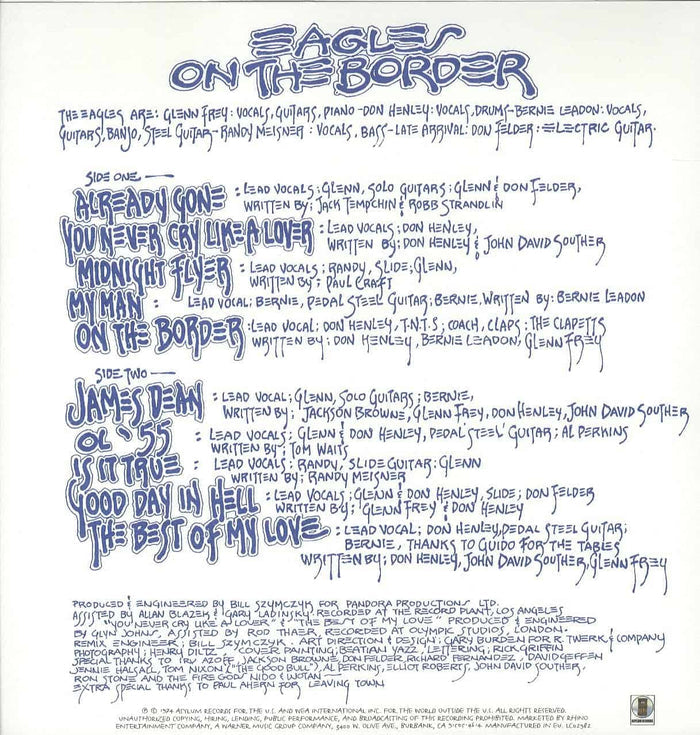 EAGLES
ON THE BORDER
THE EAGLES ARE: GLENN FREY: VOCALS, GUITARS, PIANO - DON HENLEY: VOCALS, DRUMS - BERNIE LEADON: VOCALS,
GUITARS, BANJO, STEEL GUITAR - RANDY MEISNER: VOCALS, BASS - LATE ARRIVAL: DON FELDER: ELECTRIC GUITAR.
SIDE ONE —
ALREADY GONE : LEAD VOCALS; GLENN, SOLO GUITARS; GLENN & DON FELDER,
WRITTEN BY; JACK TEMPCHIN & ROBB STRANDLIN
YOU NEVER CRY LIKE A LOVER : LEAD VOCALS; DON HENLEY,
WRITTEN BY; DON HENLEY & JOHN DAVID SOUTHER
MIDNIGHT FLYER : LEAD VOCALS; RANDY, SLIDE; GLENN,
WRITTEN BY; PAUL CRAFT
MY MAN : LEAD VOCAL; BERNIE, PEDAL STEEL GUITAR; BERNIE, WRITTEN BY: BERNIE LEADON
ON THE BORDER : LEAD VOCAL; DON HENLEY, T.N.T.S; COACH, CLAPS; THE CLAPETTS
WRITTEN BY; DON HENLEY, BERNIE LEADON, GLENN FREY
SIDE TWO —
JAMES DEAN : LEAD VOCAL; GLENN, SOLO GUITARS; BERNIE,
WRITTEN BY; JACKSON BROWNE, GLENN FREY, DON HENLEY, JOHN DAVID SOUTHER
OL '55 : LEAD VOCALS; GLENN & DON HENLEY, PEDAL STEEL GUITAR; AL PERKINS
WRITTEN BY; TOM WAITS
IS IT TRUE : LEAD VOCALS; RANDY, SLIDE GUITAR; GLENN
WRITTEN BY; RANDY MEISNER
GOOD DAY IN HELL : LEAD VOCALS; GLENN & DON HENLEY, SLIDE; DON FELDER
WRITTEN BY; GLENN FREY & DON HENLEY
THE BEST OF MY LOVE : LEAD VOCAL; DON HENLEY, PEDAL STEEL GUITAR;
BERNIE, THANKS TO GUIDO FOR THE TABLES
WRITTEN BY; DON HENLEY, JOHN DAVID SOUTHER, GLENN FREY
PRODUCED & ENGINEERED BY BILL SZYMCZYK FOR PANDORA PRODUCTIONS LTD.
ASSISTED BY ALLAN BLAZEK & GARY LADINSKY, RECORDED AT THE RECORD PLANT, LOS ANGELES
"YOU NEVER CRY LIKE A LOVER" & "THE BEST OF MY LOVE" PRODUCED & ENGINEERED
BY GLYN JOHNS, ASSISTED BY ROD THAER, RECORDED AT OLYMPIC STUDIOS, LONDON.
REMIX ENGINEER; BILL SZYMCZYK. ART DIRECTION & DESIGN; GARY BURDEN FOR R. TWERK & COMPANY
PHOTOGRAPHY; HENRY DILTZ. COVER PAINTING; BEATIAN YAZZ, LETTERING; RICK GRIFFIN
SPECIAL THANKS TO IRV AZOFF, JACKSON BROWNE, DON FELDER, RICHARD FERNANDEZ, DAVID GEFFEN
JENNIE HALSALL, TOM NIXON ("THE GOOD BULL"), AL PERKINS, ELLIOT ROBERTS, JOHN DAVID SOUTHER,
RON STONE AND THE FIRE GODS NIDO & WOTAN —
EXTRA SPECIAL THANKS TO PAUL AHERN FOR LEAVING TOWN
℗ © 1974 ASYLUM RECORDS FOR THE U.S. AND WEA INTERNATIONAL INC. FOR THE WORLD OUTSIDE THE U.S. ALL RIGHTS RESERVED.
UNAUTHORIZED COPYING, HIRING, LENDING, PUBLIC PERFORMANCE, AND BROADCASTING OF THIS RECORDING PROHIBITED. MARKETED BY RHINO
ENTERTAINMENT COMPANY, A WARNER MUSIC GROUP COMPANY, 3400 W. OLIVE AVE., BURBANK, CA MANUFACTURED IN EU.